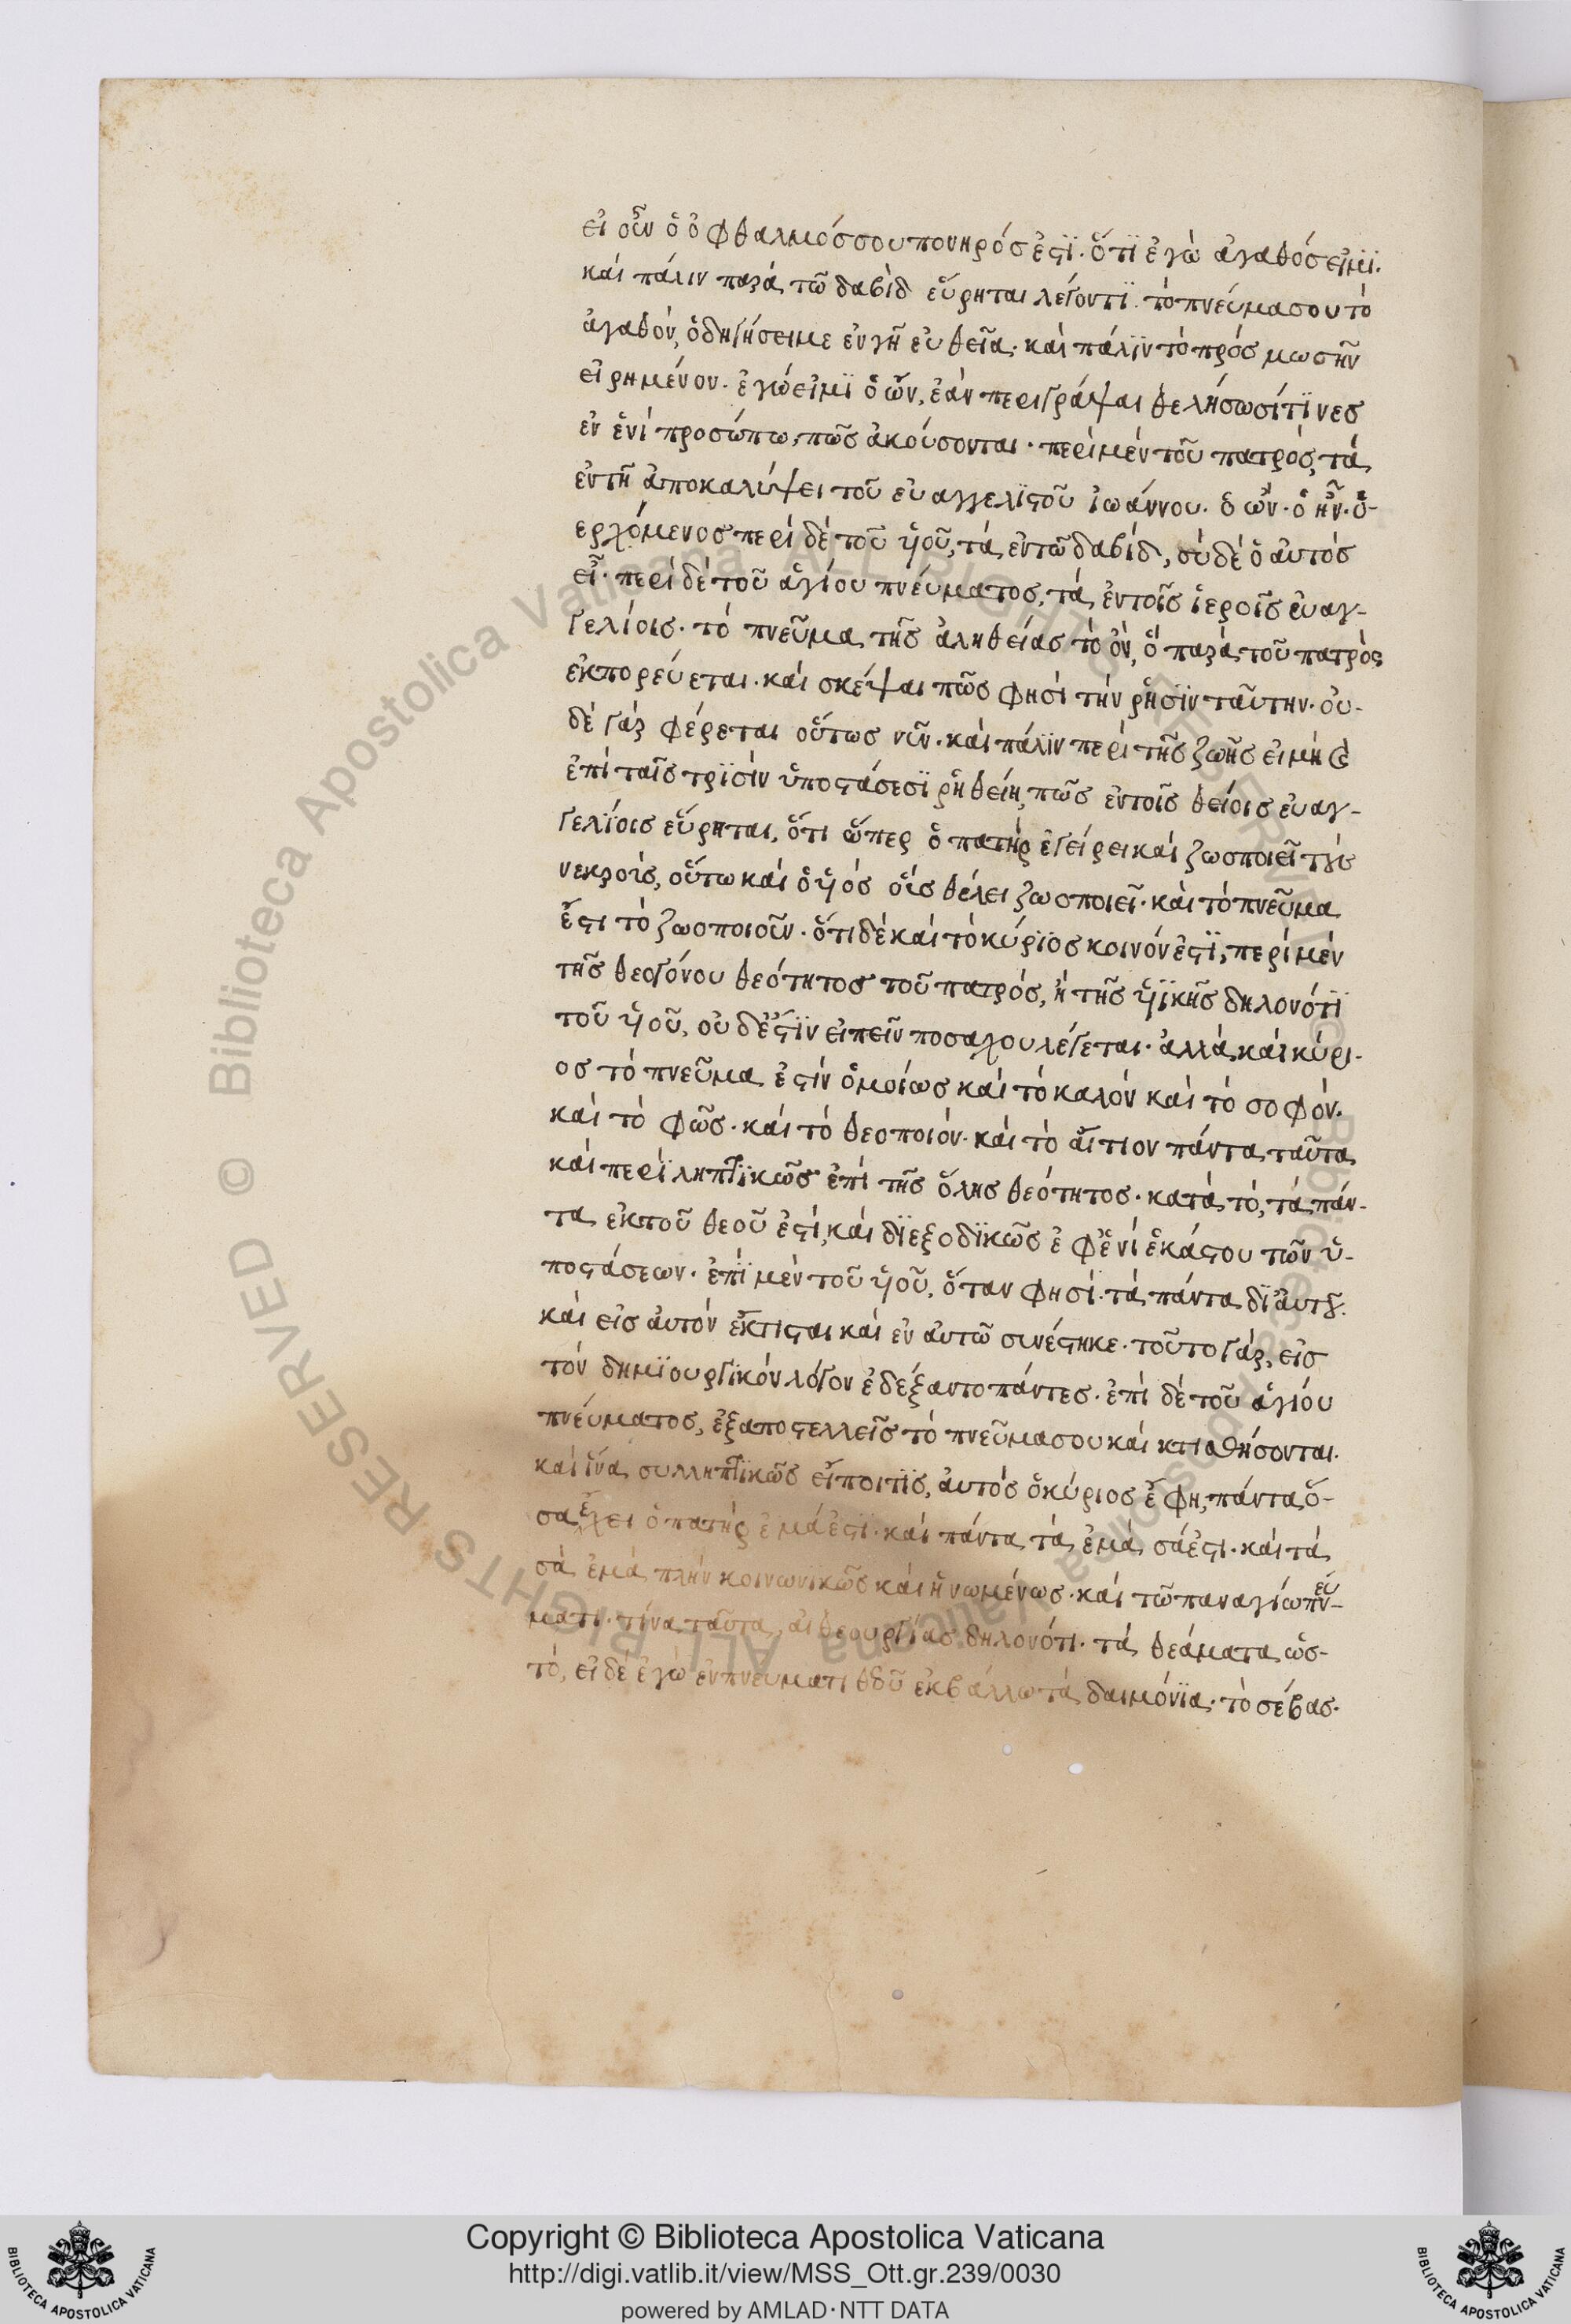 εἰ οὖν ὁ ὀφθαλμός σου πονηρός ἐστϊ· ὅτϊ ἐγὼ ἀγαθός εἰμϊ.
καὶ πάλιν παρὰ τῶ δαβὶδ εὕρηται λέγοντϊ· τὸ πνεύμα σου τὸ
ἀγαθὸν, ὁδηγήσει με ἐν γῆ εὐθεῖα· καὶ πάλϊν τὸ πρὸς μωσῆν
εἰρημένον· ἐγώ εἰμϊ ὁ ὢν, ἐὰν περιγράψαι θελήσωσί τϊνες
ἐν ἑνὶ προσώπω, πῶς ἀκούσονται· περὶ μὲν τοῦ πατρὸς, τὰ
ἐν τῆ ἀποκαλύψει τοῦ εὐαγγελϊστοῦ ἰωάννου· ὁ ὢν· ὁ ἦν· ὁ-
ερχόμενος περὶ δὲ τοῦ ὑιοῦ, τὰ ἐν τῶ δαβίδ, σὺ δὲ ὁ αὐτὸς
εἶ· περὶ δὲ τοῦ ἁγίου πνεύματος, τὰ ἐν τοῖς ἱεροῖς εὐαγ-
γελίοις· τὸ πνεῦμα τῆς ἀληθείας τὸ ὂν, ὃ παρὰ τοῦ πατρὸς
ἐκπορεύεται· καὶ σκέψαι πῶς φησὶ τὴν ῥῆσϊν ταῦτην· οὐ-
δὲ γὰρ φέρεται οὕτως νῦν· καὶ πάλϊν περὶ τῆς ζωῆς εἰ μὴ
ἐπὶ ταῖς τρϊσὶν ὑποστάσεσϊ ῥηθείη, πῶς ἐν τοῖς θείοις εὐαγ-
γελϊοις εὕρηται, ὅτι ὥπερ ὁ πατὴρ ἐγείρει καὶ ζωοποιεῖ τοὺς
νεκροὺς, οὕτω καὶ ὁ ὑιὸς οὓς θέλει ζωοποιεῖ· καὶ τὸ πνεῦμα
ἔστι τὸ ζωοποιοῦν· ὅτι δὲ καὶ τὸ κύρϊος κοινόν ἐστϊ, περὶ μὲν
τῆς θεογόνου θεότητος τοῦ πατρὸς, ἢ τῆς ὑιϊκῆς δηλονότϊ
τοῦ ὑιοῦ, οὐδέστϊν εἰπεῖν ποσαχου λέγεται· ἀλλὰ καὶ κύρι-
ος τὸ πνεῦμα ἐστίν ὁμοίως καὶ τὸ καλόν καὶ τὸ σοφόν·
καὶ τὸ φῶς· καὶ τὸ θεοποιόν· καὶ τὸ αἴτιον πάντα ταῦτα
καὶ περϊληπτϊκῶς ἐπὶ τῆς ὅλης θεότητος· κατὰ τὸ, τὰ πάν-
τα ἐκ τοῦ θεοῦ ἐστί, καὶ δϊεξοδϊκῶς ἐφ' ἑνὶ ἑκάστου τῶν ὑ-
ποστάσεων· ἐπῒ μὲν τοῦ ὑιοῦ, ὅταν φησί· τὰ πάντα δϊ' αὐτοῦ.
καὶ εἰς αὐτόν ἔκτισται καὶ ἐν αὐτῶ συνέστηκε· τοῦτο γὰρ, εἰς
τὸν δημϊουργϊκόν λόγον ἐδέξαντο πάντες· ἐπὶ δὲ τοῦ ἁγίου
πνεύματος, ἐξαποστελλεῖς τὸ πνεῦμα σου καὶ κτισθήσονται.
καὶ ἵνα συλληπτϊκῶς εἴποι τϊς, αὐτός ὁ κύριος ἔφη, πάντα ὅ-
σα ἔχει ὁ πατήρ ἐμά ἐστϊ· καὶ πάντα τὰ ἐμά σά ἐστι· καὶ τὰ
σὰ ἐμὰ πλὴν κοινωνικῶς καὶ ἡνωμένως· καὶ τῶ παναγίω πνεύ-
ματι· τίνα ταῦτα, αἱ θεουργίας δηλονότι· τὰ θεάματα ὡς-
τὸ, εἰ δὲ ἐγὼ ἐν πνευματι θεοῦ ἐκβάλλω τὰ δαιμόνϊα· τὸ σέβας.
Copyright © Biblioteca Apostolica Vaticana
http://digi.vatlib.it/view/MSS_Ott.gr.239/0030
powered by AMLAD·NTT DATA